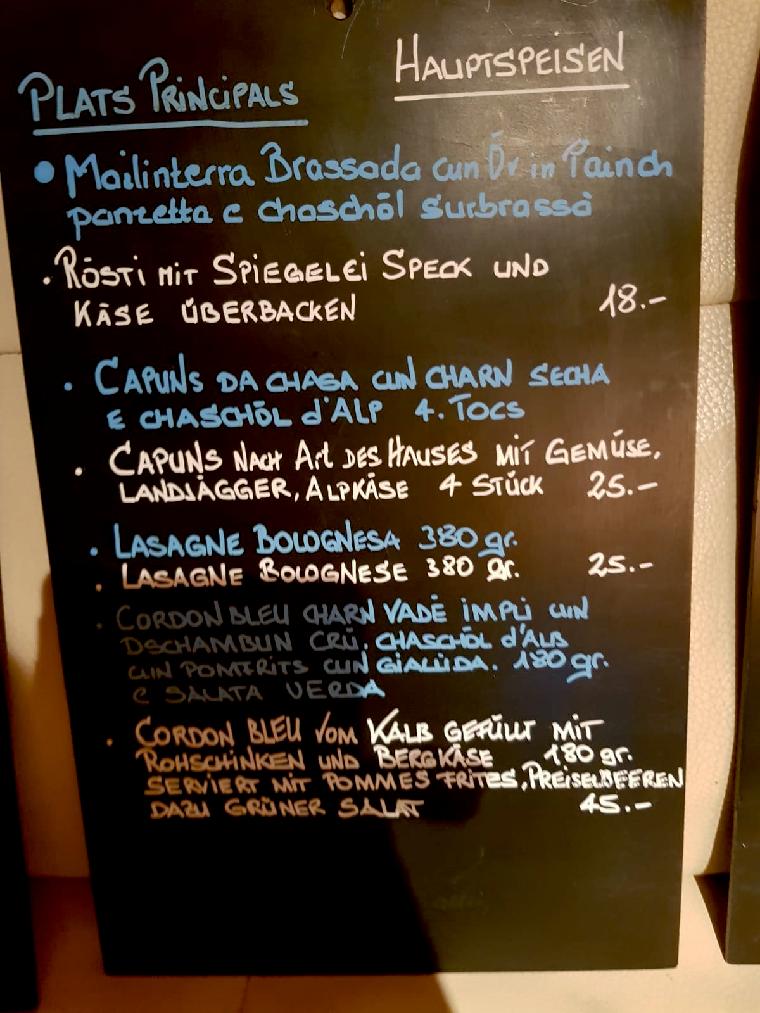 PLATS PRINCIPALS
HAUPTSPEISEN
• Mailinterra Brassada cun Öv in Painch
panzetta e chaschöl surbrassà
. RÖSTI MIT SPIEGELEI SPECK UND
KÄSE ÜBERBACKEN 18.-
. CAPUNS DA CHASA CUN CHARN SECHA
E CHASCHÖL d'ALP 4. TOCS
. CAPUNS NACH Art DES HAUSES MIT GEMÜSE,
LANDJÄGGER, ALPKÄSE 4 STÜCK 25.-
. LASAGNE BOLOGNESA 380 gr.
. LASAGNE BOLOGNESE 380 gr. 25.-
. CORDON BLEU CHARN VADÈ IMPLI CUN
DSCHAMBUN CRÜ, CHASCHÖL d'ALB
CUN POMFRITS CUN GIALÜDA. 180 gr.
E SALATA VERDA
. CORDON BLEU VOM KALB GEFÜLLT MIT
ROHSCHINKEN UND BERGKÄSE 180 gr.
SERVIERT MIT POMMES FRITES, PREISELBEEREN
DAZU GRÜNER SALAT 45.-